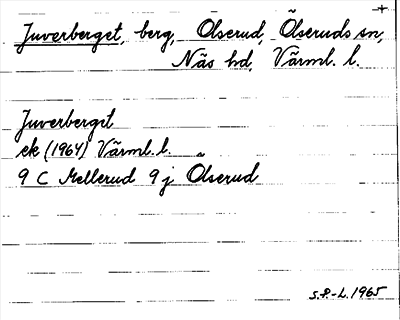 +
Juverberget, berg, Ölserud, Ölseruds sn,
Näs hd, Värml. l.
Juverberget
ek (1964) Värml. l.
9 C Mellerud 9 j Ölserud
S.P-L. 1965